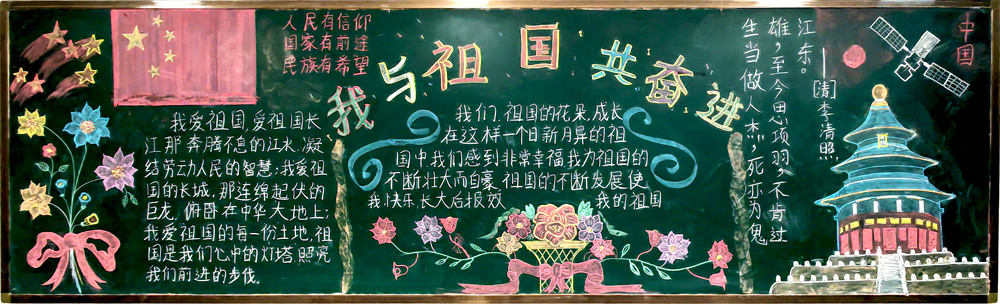 人民有信仰
国家有前途
民族有希望
我与祖国共奋进
我爱祖国,爱祖国长
江那奔腾不息的江水,凝
结劳动人民的智慧;我爱祖
国的长城,那连绵起伏的
巨龙,俯卧在中华大地上;
我爱祖国的每一份土地,祖
国是我们心中的灯塔,照亮
我们前进的步伐。
我们,祖国的花朵,成长
在这样一个日新月异的祖
国中我们感到非常幸福我为祖国的
不断壮大而自豪,祖国的不断发展使
我快乐,长大后报效 我的祖国
生当做人杰,死亦为鬼
雄,至今思项羽,不肯过
江东。
——[清]李清照
中国